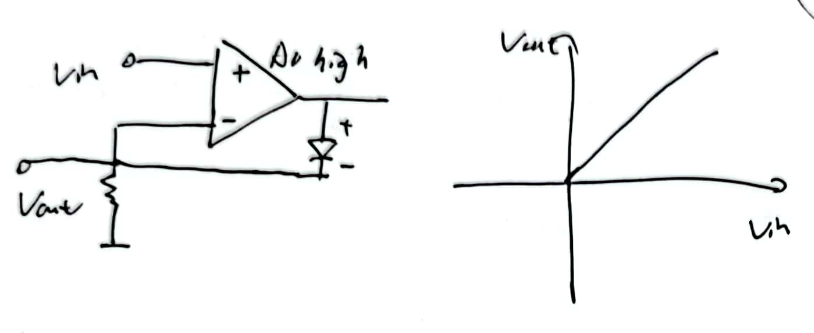 Vin
+
A0 high
-
+
-
Vout
Vout
Vin